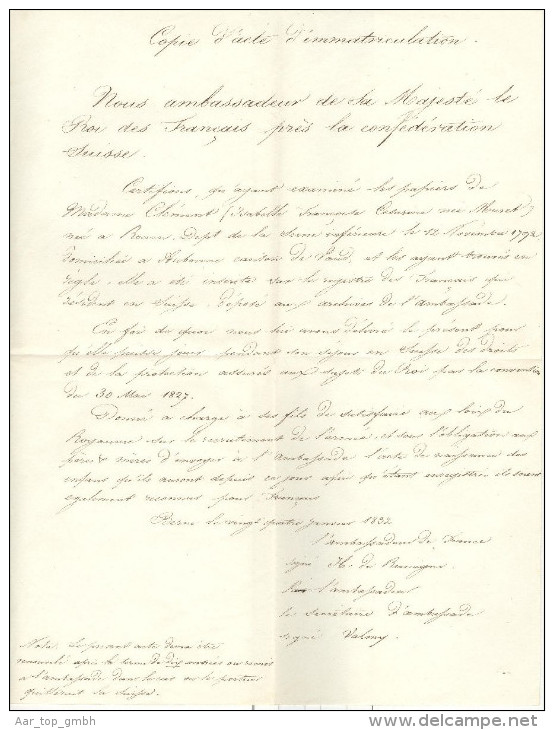 Copie d'acte d'immatriculation.
Nous ambassadeur de Sa Majesté le
Roi des Français près la confédération
Suisse.
Certifions, qu'ayant examiné les papiers de
Madame Clément (Isabelle Françoise née Muret)
née à Rouen, Dept de la Seine inférieure le 12 Novembre 1792,
domiciliée à Aubonne canton de Vaud, et les ayant trouvés en
règle, elle a été inscrite sur le registre des Français qui
résident en Suisse, déposé aux archives de l'ambassade.
En foi de quoi nous lui avons délivré le présent pour
qu'elle puisse jouir pendant son séjour en Suisse des droits
et de la protection assurés aux sujets du Roi par la convention
du 30 Mai 1827.
Donné à charge à ses fils de satisfaire aux loix du
Royaume sur le recrutement de l'armée et sous l'obligation aux
père & mères d'envoyer à l'ambassade l'acte de naissance des
enfans qu'ils auront depuis ce jour afin qu'étant enregistrés ils soient
également reconnus pour Français
Berne le vingt quatre janvier 1832
l'ambassadeur de France
signé H. de
l'ambassadeur
le secrétaire d'ambassade
signé Valmy.
Nota. Le présent acte devra être
renouvelé après le terme de dix années ou remis
à l'ambassade dans le cas où le porteur
quitterait la Suisse.
Aar_top_gmbh
delcampe.net